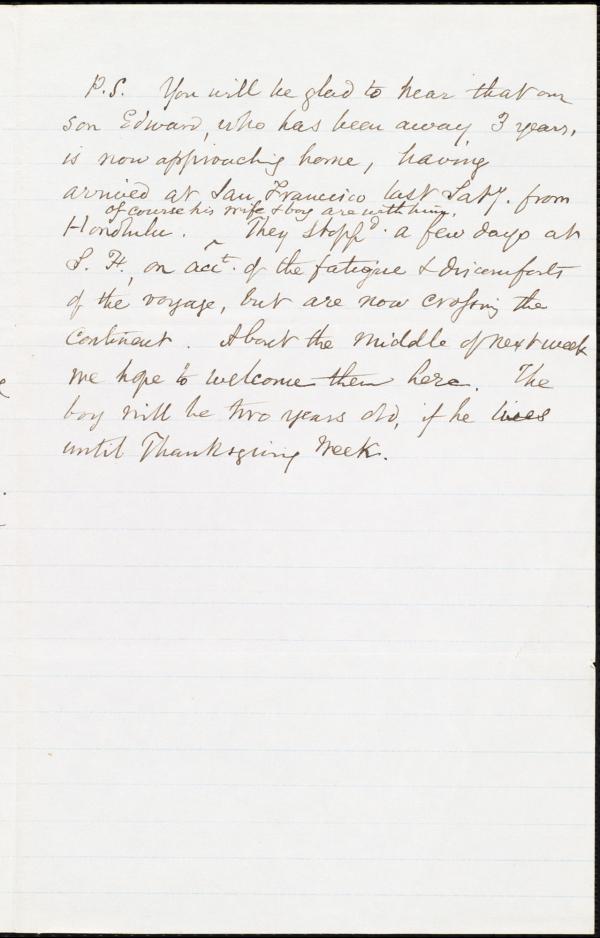 P.S. You will be glad to hear that our
son Edward, who has been away 3 years,
is now approaching home, having
arrived at San Francisco last Saty. from
of course his wife & boy are with him.
Honolulu. ^ They stopp'd a few days at
S. F., on acct. of the fatigue & discomforts
of the voyage, but are now crossing the
Continent. About the middle of next week
we hope to welcome them here. The
boy will be two years old, if he lives
until Thanksgiving Week.